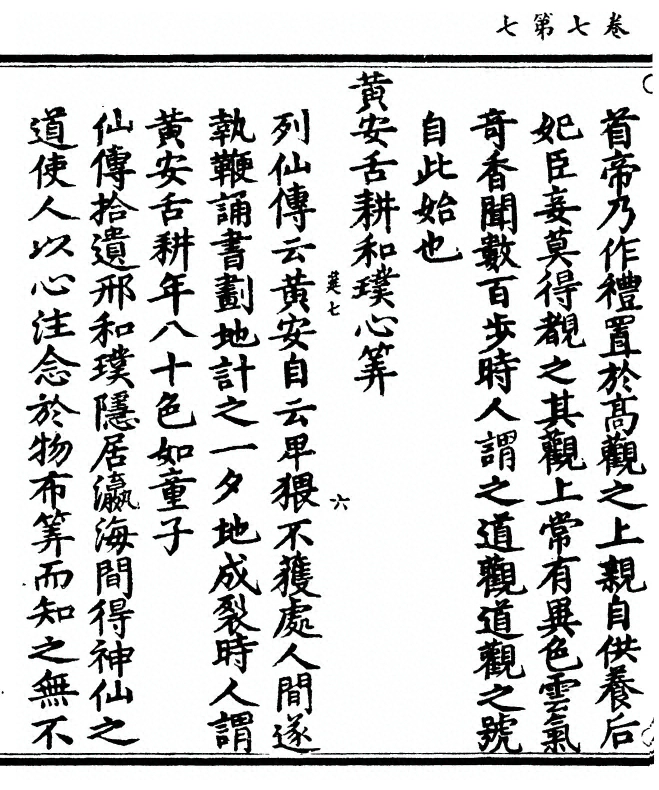 卷七第七
首帝乃作禮置於髙觀之上親自供養后
妃臣妾莫得覩之其觀上常有異色雲氣
竒香聞數百步時人謂之道觀道觀之號
自此始也
黃安舌耕和璞心筭
英七 六
列仙傳云黃安自云卑猥不獲處人間遂
執鞭誦書劃地計之一夕地成裂時人謂
黃安舌耕年八十色如童子
仙傳拾遺邢和璞隱居瀛海間得神仙之
道使人以心注念於物布筭而知之無不